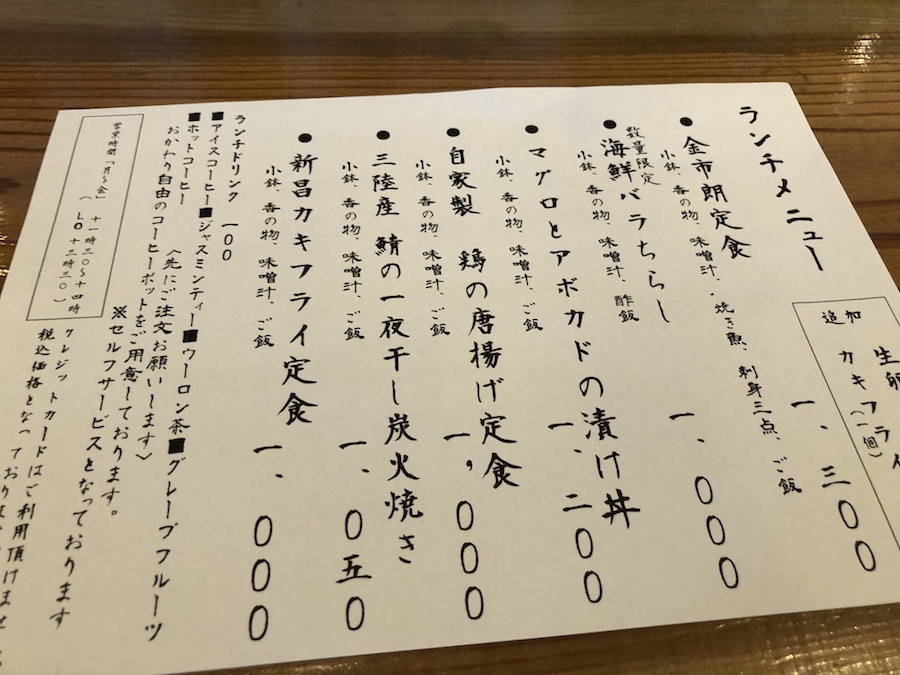 ランチメニュー
追加
生卵
カキフライ
(一個)
●金市朗定食 一、三〇〇
小鉢、香の物、味噌汁、焼き魚、刺身三点、ご飯
数量限定
●海鮮バラちらし 一、〇〇〇
小鉢、香の物、味噌汁、酢飯
●マグロとアボカドの漬け丼 一、二〇〇
小鉢、香の物、味噌汁、ご飯
●自家製 鶏の唐揚げ定食 一,〇〇〇
小鉢、香の物、味噌汁、ご飯
●三陸産 鯖の一夜干し炭火焼き 一、〇五〇
小鉢、香の物、味噌汁、ご飯
●新昌カキフライ定食 一、〇〇〇
小鉢、香の物、味噌汁、ご飯
ランチドリンク 一〇〇
■アイスコーヒー■ジャスミンティー■ウーロン茶■グレープフルーツ
■ホットコーヒー 〈先にご注文お願いします〉
おかわり自由のコーヒーポットをご用意しております。
※セルフサービスとなっております。
営業時間「月〜金」 十一時三〇〜十四時
(LO 十三時三〇)
税込価格となっております
クレジットカードはご利用頂けませ